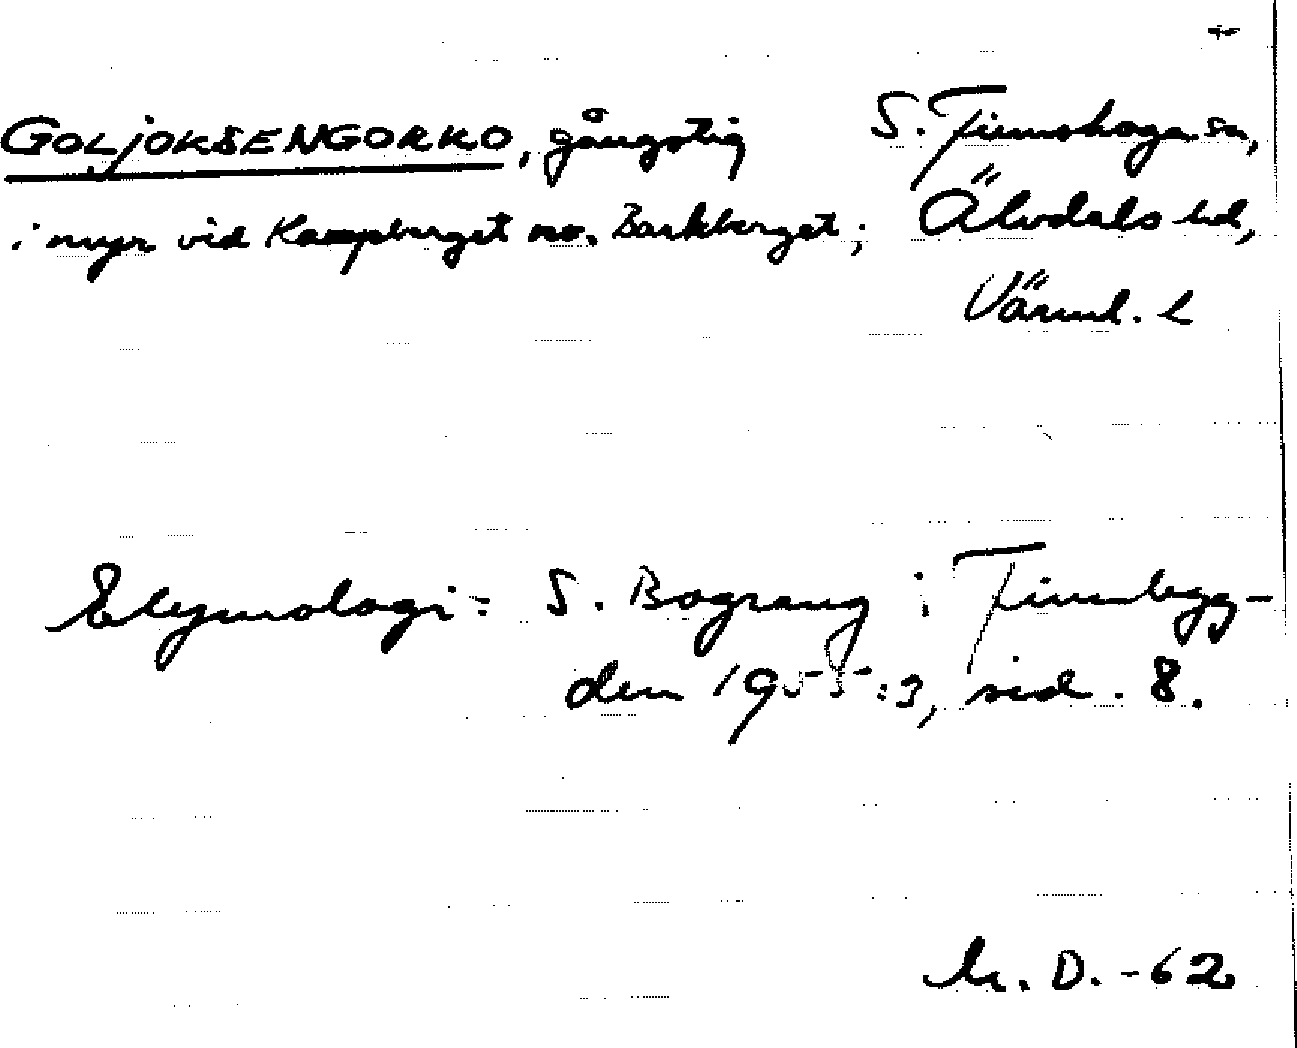 GOLJOKSENGORKO, gångstig S. Finnskoga sn,
i myr vid Kampberget no. Barkberget; Älvdals hd,
Värml. l
Etymologi: S. Bograng i Finnbygg-
den 1955:3, sid. 8.
D. -62